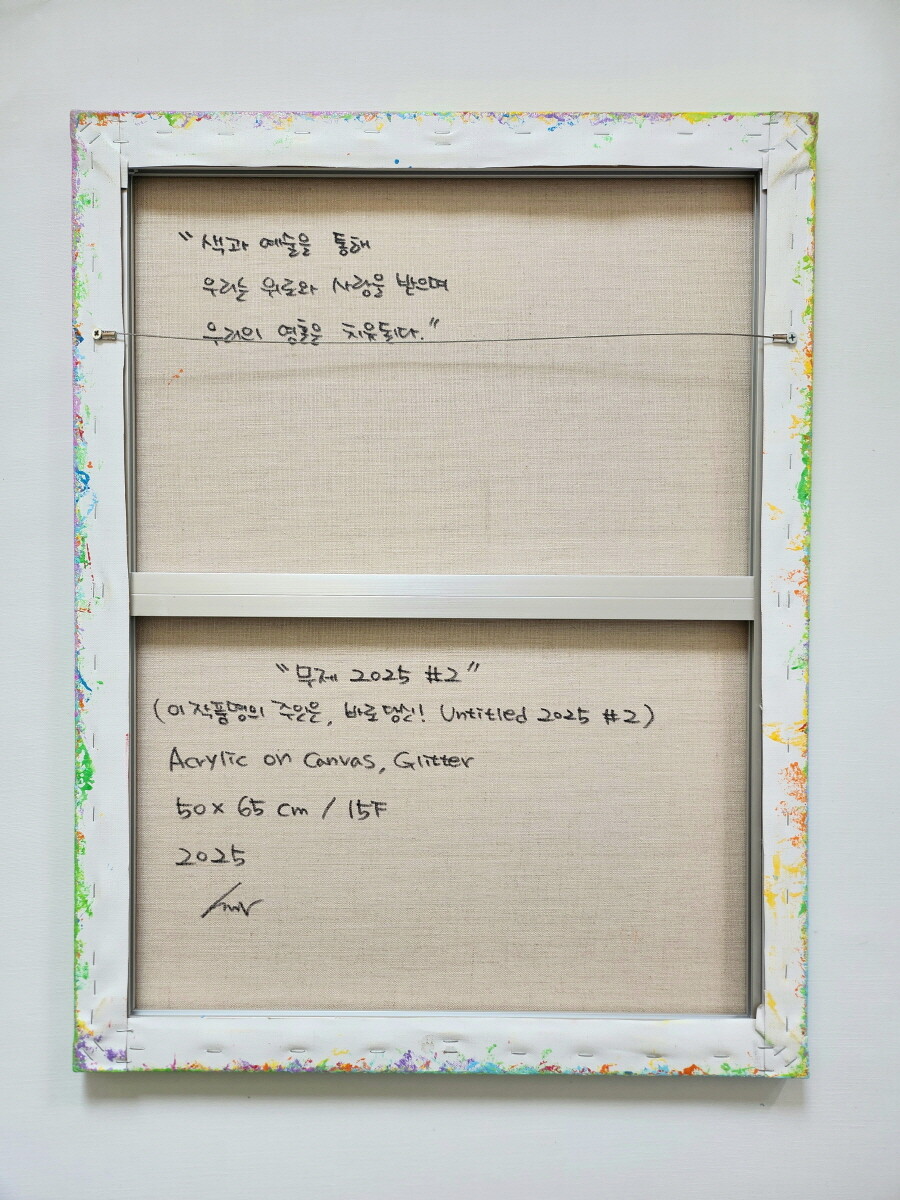 "색과 예술을 통해
우리는 위로와 사랑을 받으며
우리의 영혼을 치유된다."
"무제 2025 #2"
(이 작품명의 주인은, 바로 당신! Untitled 2025 #2)
Acrylic on Canvas, Glitter
50 x 65 cm / 15F
2025